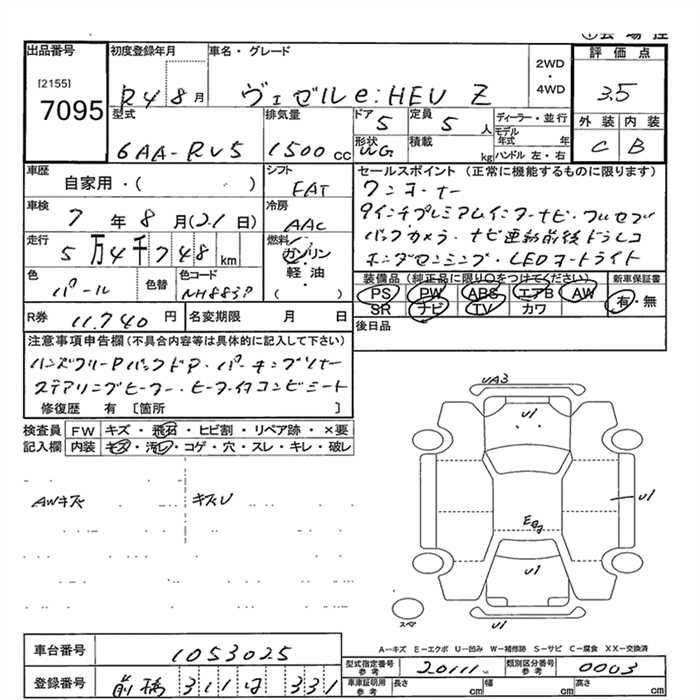 出品番号 [2155] 7095
初度登録年月 R4 8月
車名・グレード ヴェゼル e:HEV Z
2WD・4WD
評価点 3.5
外装 C 内装 B
型式 6AA-RV5
排気量 1500 cc
ドア 5
形状 WG
定員 5 人
積載 kg
ディーラー・並行
モデル年式 年
ハンドル 左・右
車歴 自家用・( )
シフト FAT
車検 7年8月(21日)
冷房 AAC
走行 5万4千748km
燃料 ガソリン 軽油 ( )
色 パール 色替
色コード NH883P
R券 11,740円
名変期限 月 日
セールスポイント(正常に機能するものに限ります)
ワンオーナー
9インチプレミアムインターナビ・フルセブ
バックカメラ・ナビ連動前後ドラレコ
ホンダセンシング・LEDオートライト
装備品(純正品に限り○をつけてください) 新車保証書
PS PW ABS エアB AW 有・無
SR ナビ TV カワ
後日品
注意事項申告欄(不具合内容等は具体的に記入して下さい)
ハンズフリーPバックドア・パーキングソナー
ステアリングヒーター・ヒーター付コンビシート
修復歴 有 [箇所 ]
検査員 FW キズ・飛石・ヒビ割・リペア跡・×要
記入欄 内装 キズ・汚レ・コゲ・穴・スレ・キレ・破レ
AWキズ キズU
UA3
U1
U1
U1
U1
スペア
A−キズ E−エクボ U−凹み W−補修跡 S−サビ C−腐食 XX−交換済
車台番号 1053025
登録番号 前橋 311 は 331
型式指定番号 参考 20111
類別区分番号 参考 0003
車庫証明用 参考 長さ cm 幅 cm 高さ cm